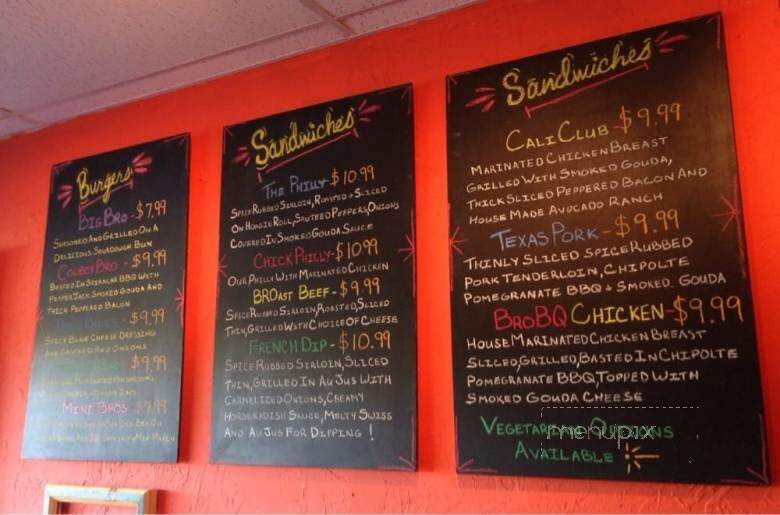 Burgers
Big Bro - $7.99
Seasoned And Grilled On A
Delicious Sourdough Bun
Cowboy Bro - $9.99
Basted In Sriracha BBQ With
Pepper Jack Smoked Gouda And
Thick Peppered Bacon
$9.99
Spicy Blue Cheese Dressing
And Sauteed Red Onions
$9.99
Mini Bros $7.99
Sandwiches
The Philly $10.99
Spice Rubbed Sirloin, Roasted & Sliced
On Hoagie Roll, Sauteed Peppers, Onions
Covered In Smoked Gouda Sauce
Chick Philly - $10.99
Our Philly With Marinated Chicken
BROast Beef - $9.99
Spice Rubbed Sirloin, Roasted, Sliced
Thin, Grilled With Choice Of Cheese
French Dip - $10.99
Spice Rubbed Sirloin, Sliced
Thin, Grilled In Au Jus With
Carnelized Onions, Creamy
Horseradish Sauce, Melty Swiss
And Au Jus For Dipping !
Sandwiches
Cali Club - $9.99
Marinated Chicken Breast
Grilled With Smoked Gouda,
Thick Sliced Peppered Bacon And
House Made Avocado Ranch
Texas Pork - $9.99
Thinly Sliced Spice Rubbed
Pork Tenderloin, Chipolte
Pomegranate BBQ + Smoked Gouda
BroBQ Chicken - $9.99
House Marinated Chicken Breast
Sliced, Grilled, Basted In Chipolte
Pomegranate BBQ, Topped With
Smoked Gouda Cheese
Vegetarian Options
Available
menupix